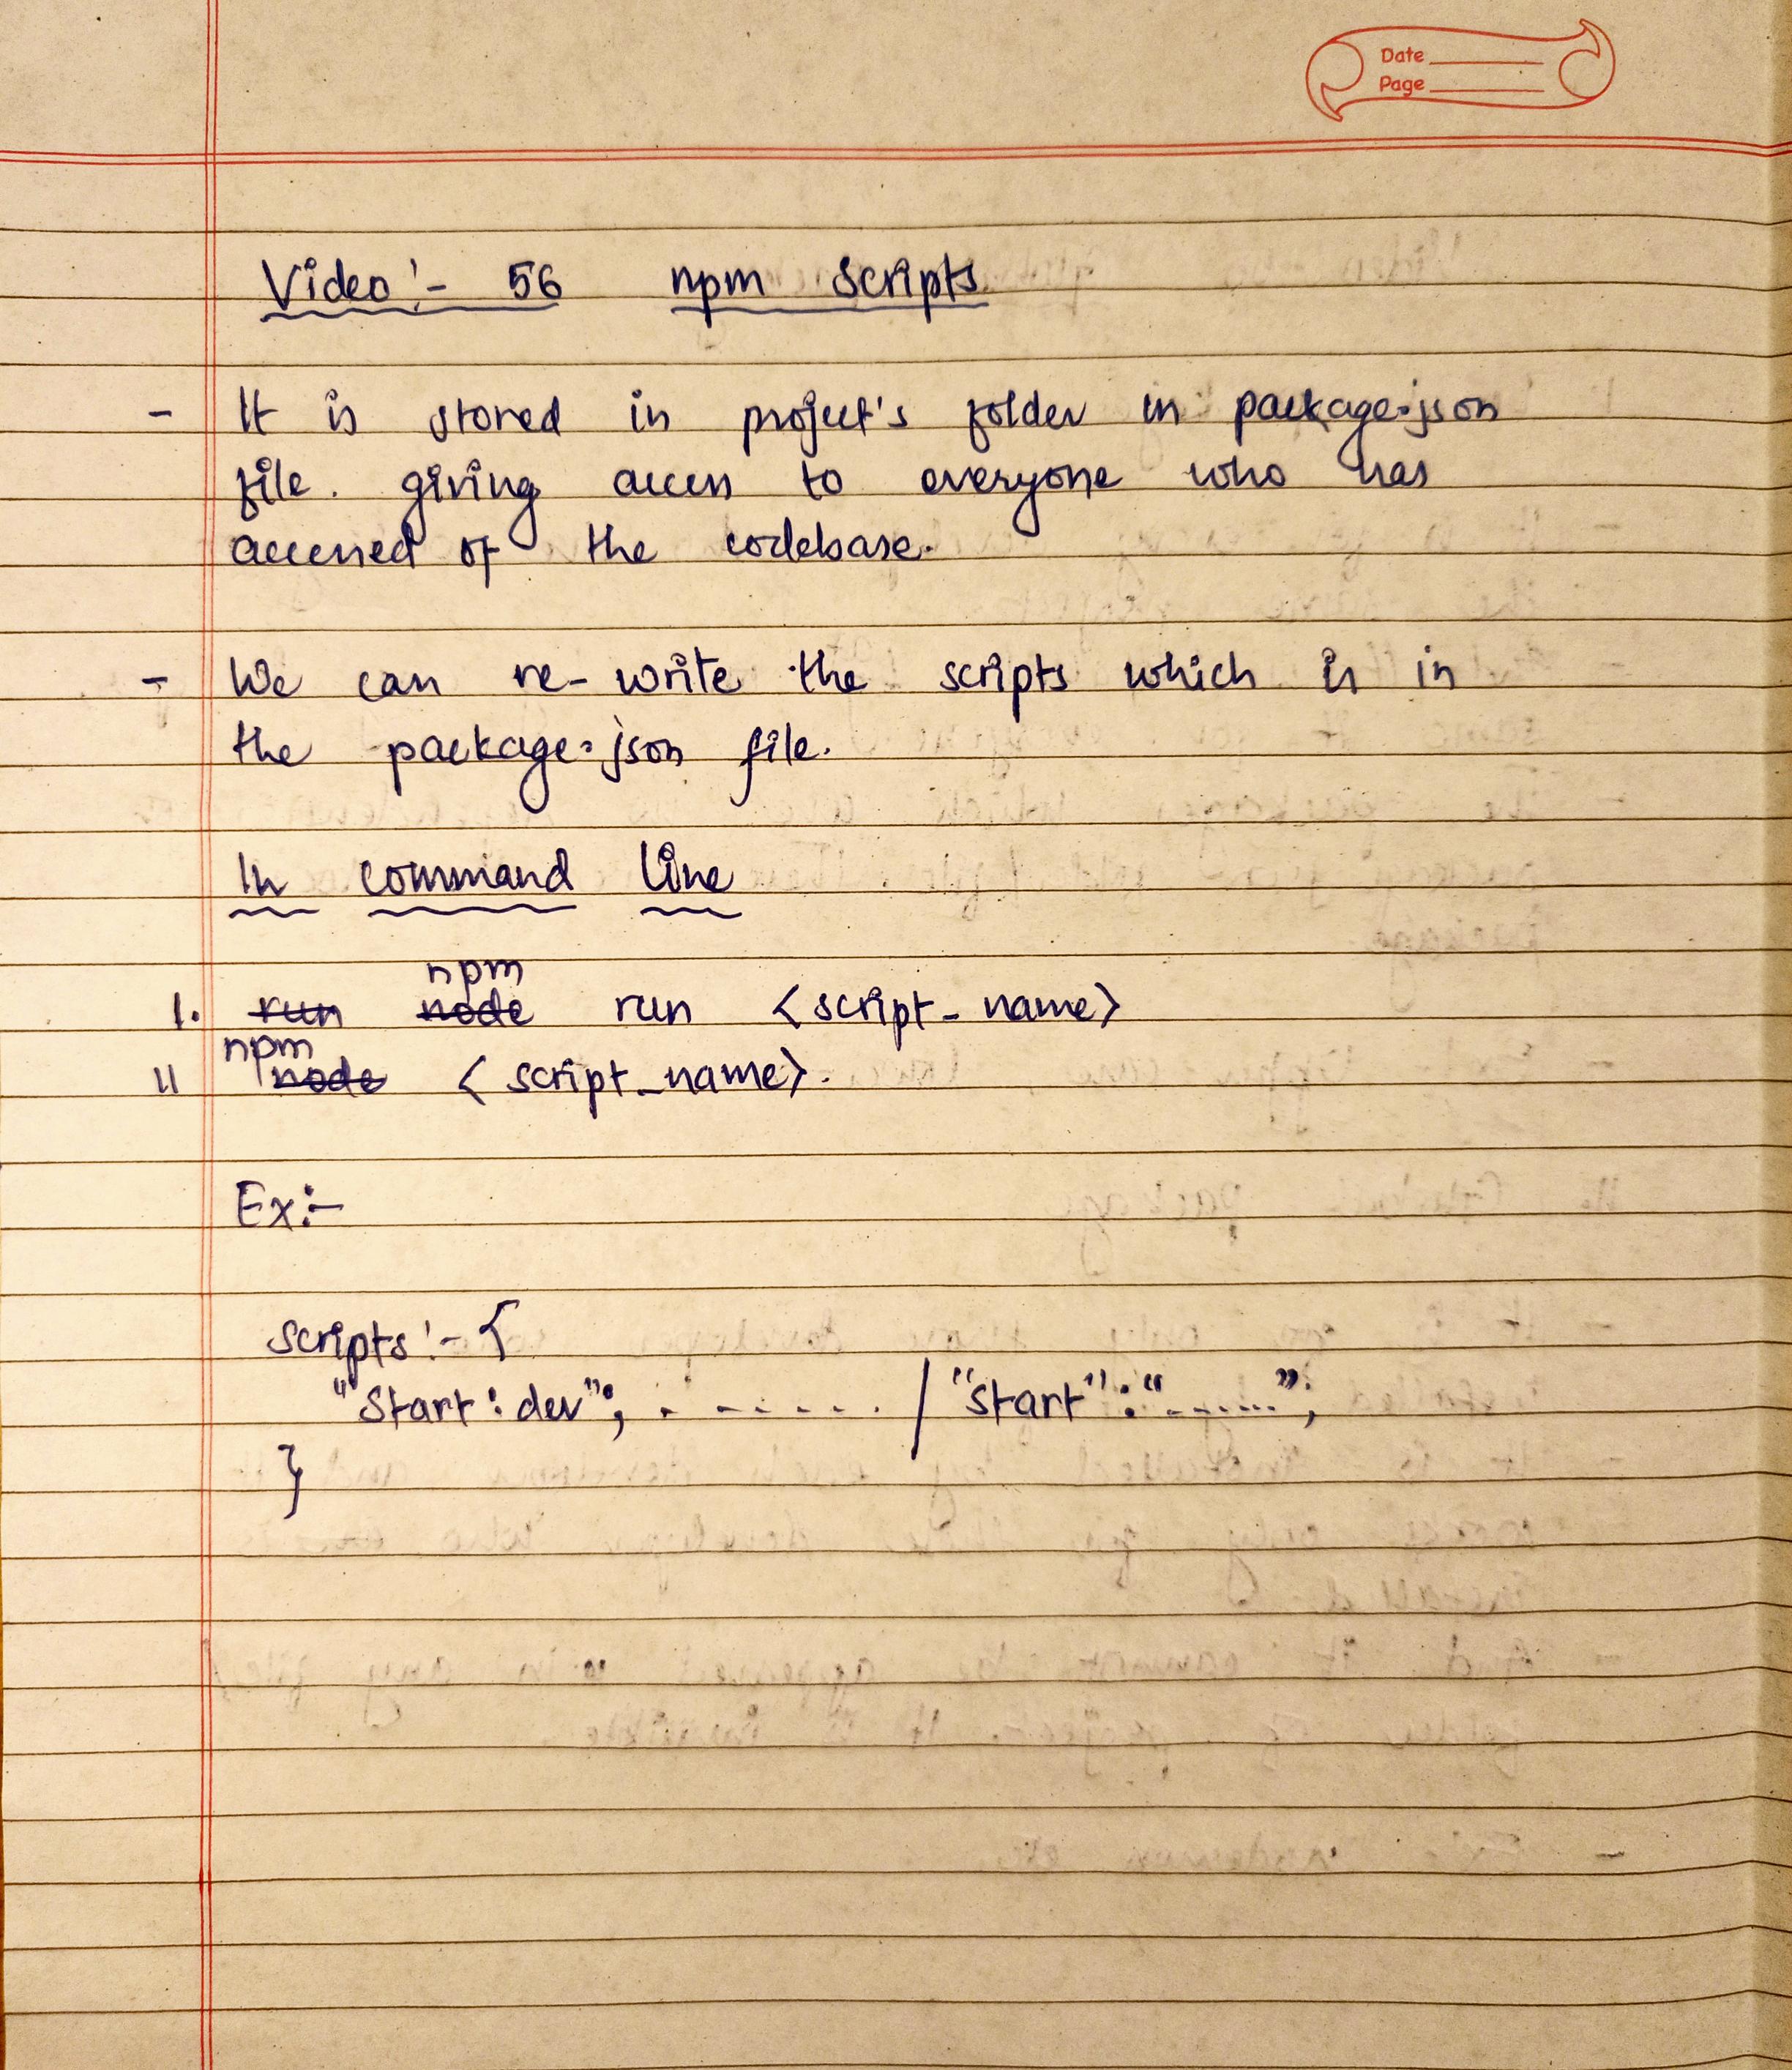 Date
Page
Video:- 56 npm scripts
- It is stored in project's folder in package.json
file. giving access to everyone who has
accessed of the codebase.
- We can re-write the scripts which is in
the package.json file.
In command line
npm
1. run node run <script_name>
npm
11 node <script_name>.
Ex:-
scripts:- {
"Start:dev"; . - - - - - . / "Start":"------";
}